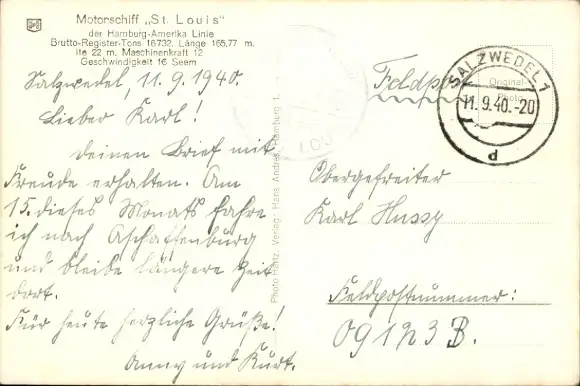 Motorschiff „St. Louis"
der Hamburg-Amerika Linie
Brutto-Register-Tons 16732. Länge 165,77 m.
ite 22 m. Maschinenkraft 12
Geschwindigkeit 16 Seem
Salzwedel, 11.9.1940.
Lieber Karl!
Deinen Brief mit
Freude erhalten. Am
15. dieses Monats fahre
ich nach Aschaffenburg
und bleibe längere Zeit
dort.
Für heute herzliche Grüße!
Anny und Kurt.
Photo Hartz. Verlag: Hans Andres, Hamburg 1.
LOU
Feldpost
Original-
Photo
SALZWEDEL 1
11.9.40.-20
d
Obergefreiter
Karl Hussy
Feldpostnummer:
09123 B.